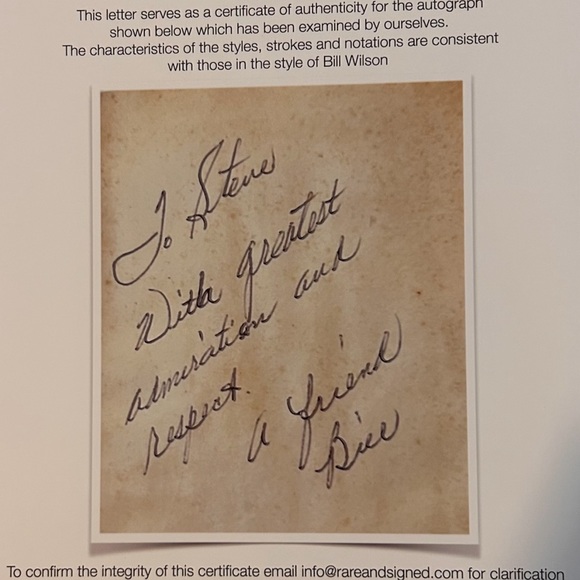 This letter serves as a certificate of authenticity for the autograph
shown below which has been examined by ourselves.
The characteristics of the styles, strokes and notations are consistent
with those in the style of Bill Wilson
To Steve
With greatest
admiration and
respect.
A friend
Bill
To confirm the integrity of this certificate email info@rareandsigned.com for clarification